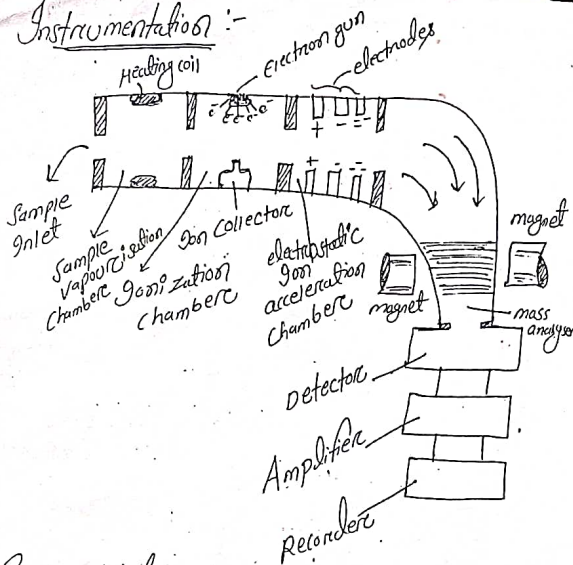 Instrumentation :-
Heating coil
Electron gun
electrodes
e⁻ e⁻ e⁻ e⁻ e⁻
+ - = -
+ - -
Sample
Inlet
Sample
vapourisation
chambere
Ionization
chambere
Ion Collector
electrostatic
Ion
acceleration
chambere
magnet
magnet
mass
analyser
Detector
Amplifier
Recorder